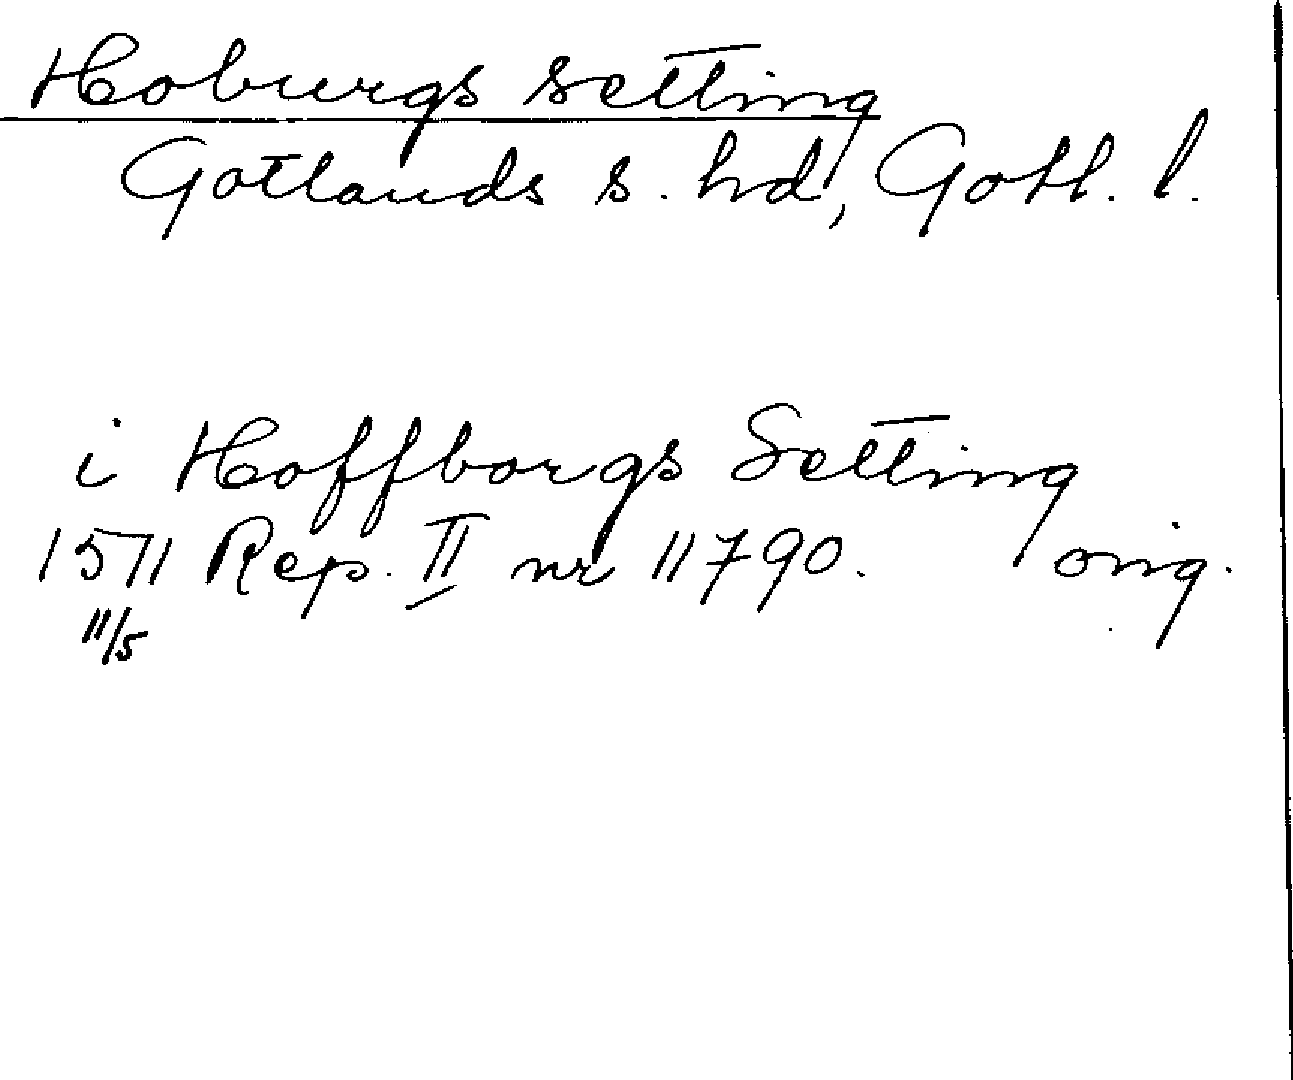 Hoburgs setting
Gotlands s. hd, Gotl. l.
i Hoffborgs Setting
1511 Rep. II nr 11790. orig.
11/5